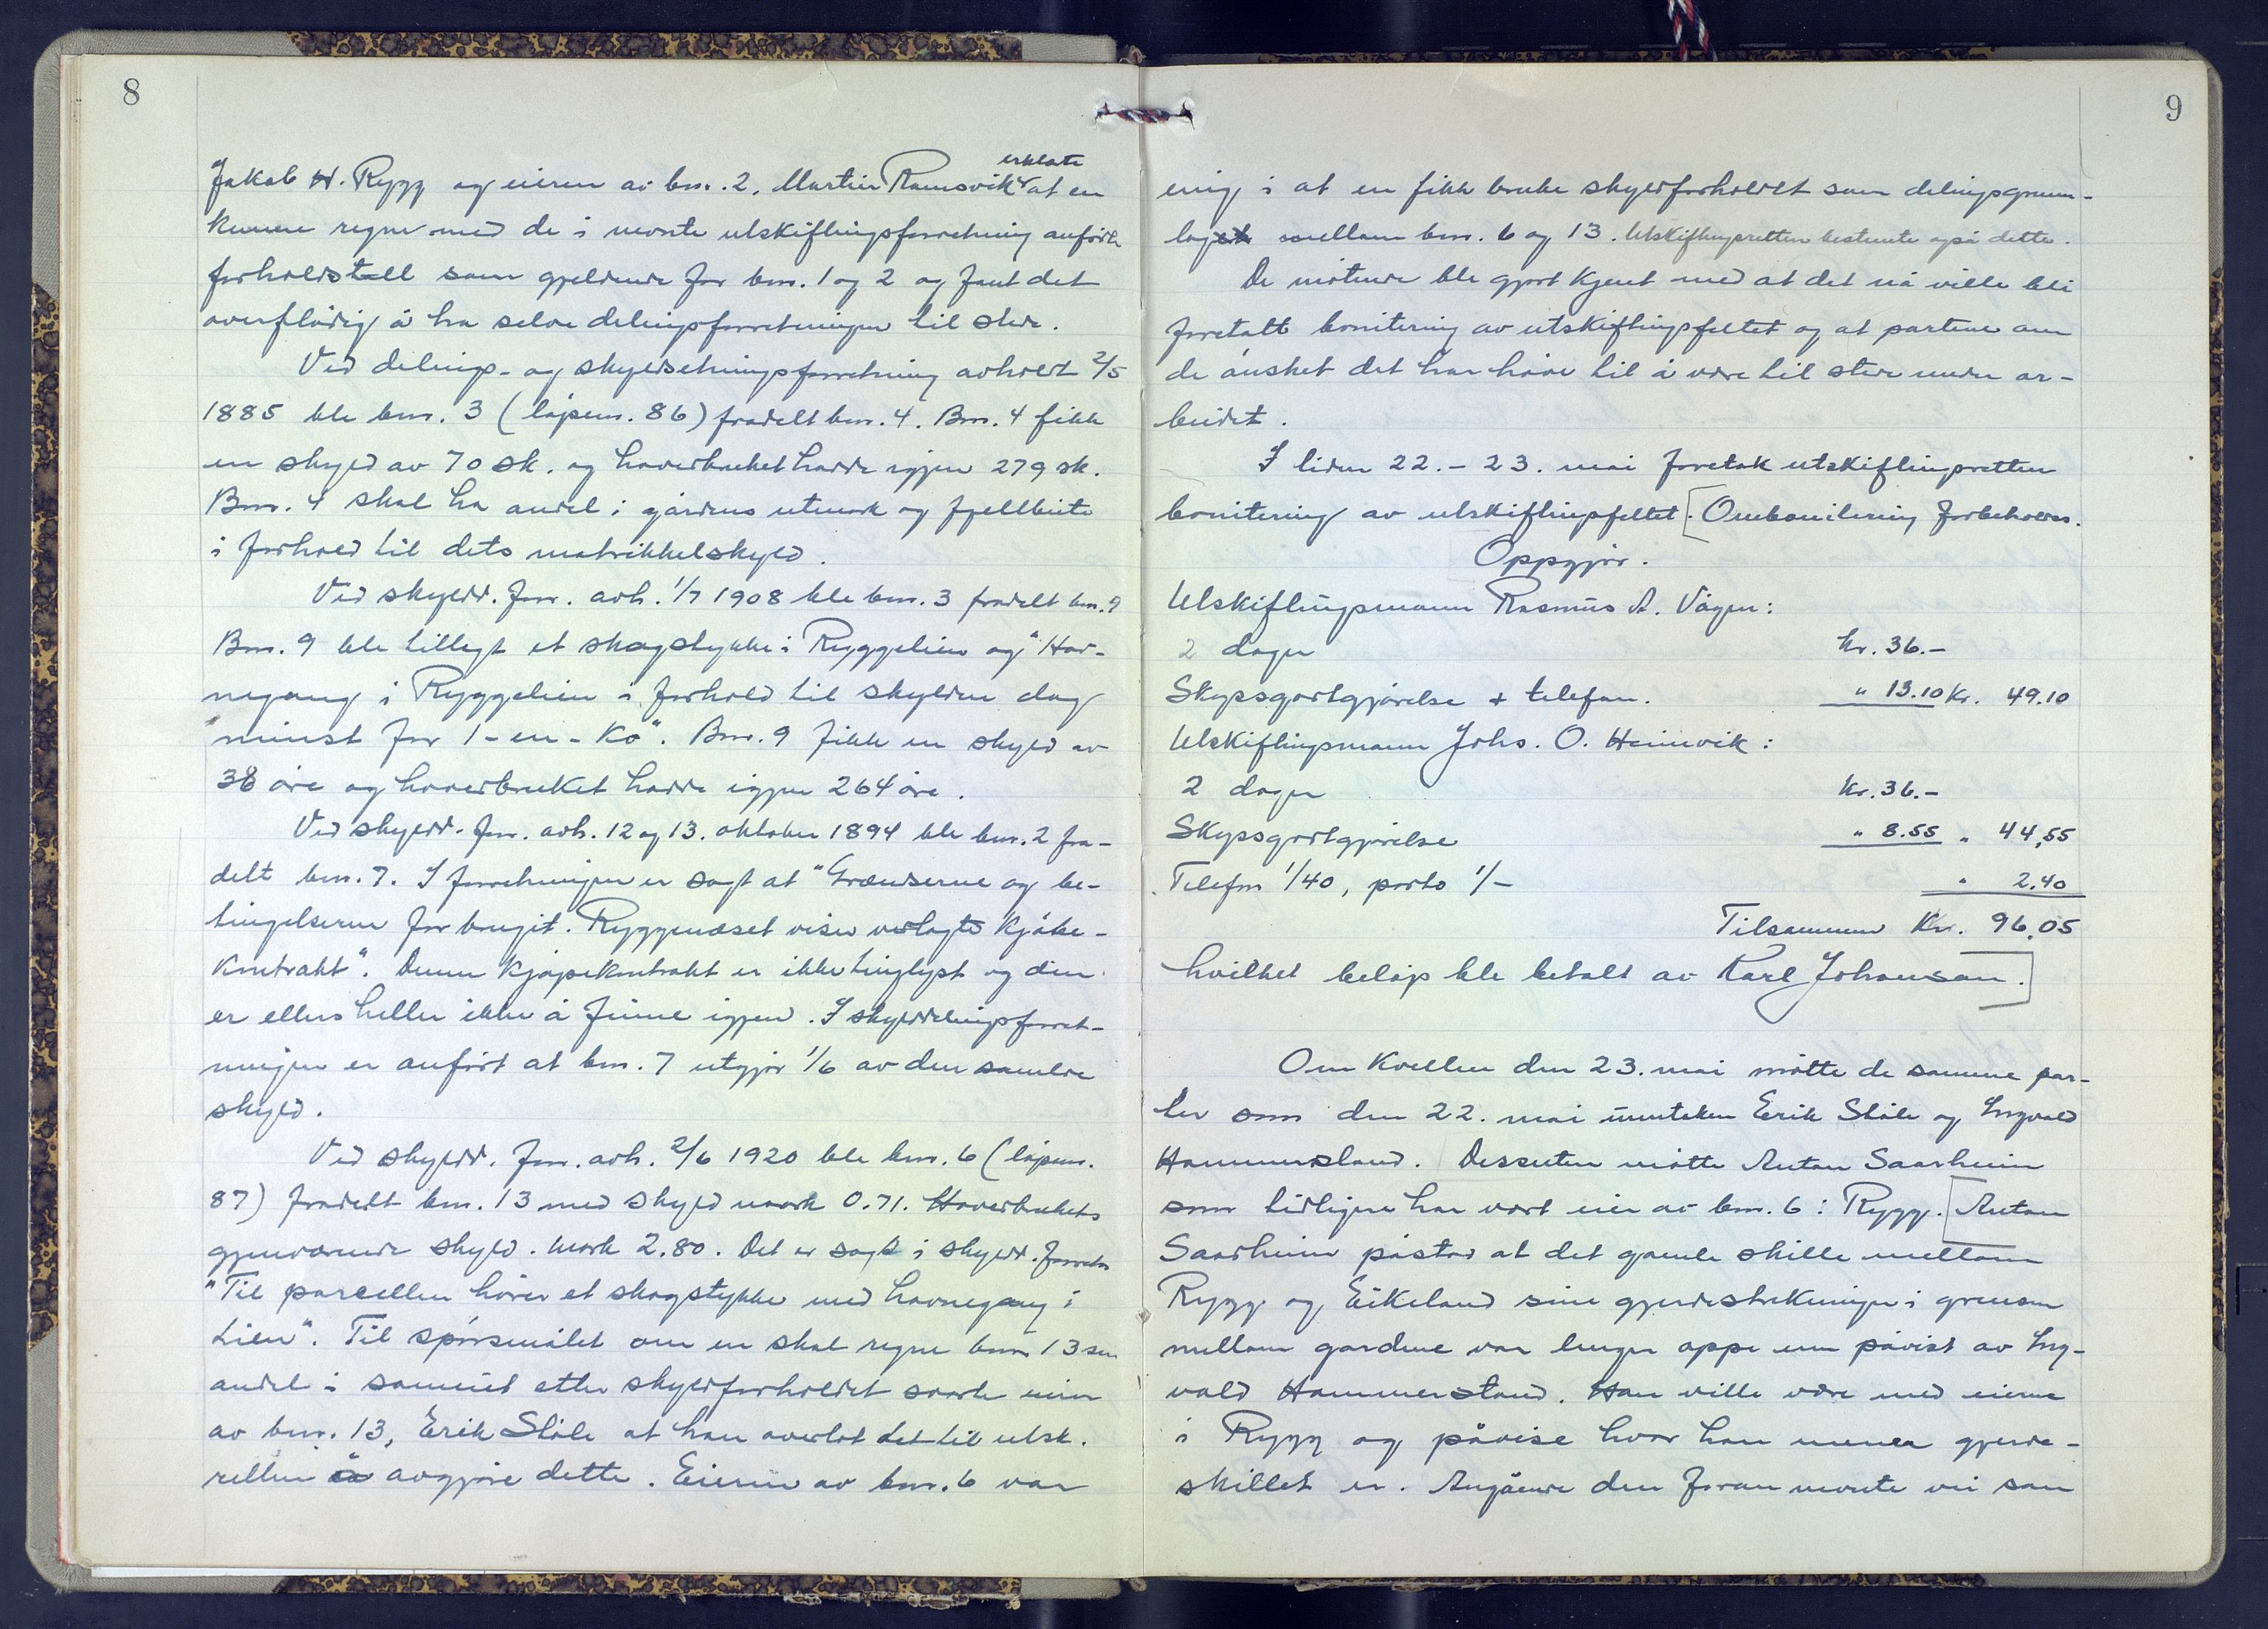 8
Jakob H. Rygg og eieren av bnr. 2. Martin Ramsvik erklærte at en
kunne regne med de i nevnte utskiftingsforretning anförte
forholdstall som gjeldende for bnr. 1 og 2 og fant det
overflödig å ha selve delingsforretningen til stede.
Ved delings- og skyldsetningsforretning avholdt 2/5
1885 ble bnr. 3 (löpenr. 86) fradelt bnr. 4. Bnr. 4 fikk
en skyld av 70 sk. og hovedbruket hadde igjen 279 sk.
Bnr. 4 skal ha andel i gårdens utmark og fjellbeite
i forhold til dets matrikkelskyld.
Ved skyldd. forr. avh. 1/7 1908 ble bnr. 3 fradelt bnr. 9
Bnr. 9 ble tillegt et skogstykke i Ryggelien og "Hav-
negang i Ryggelien i forhold til skylden dog
minst for 1 - en - ko". Bnr. 9 fikk en skyld av
38 öre og hovedbruket hadde igjen 264 öre.
Ved skyldd. forr. avh. 12 og 13. oktober 1894 ble bnr. 2 fra-
delt bnr. 7. I forretningen er sagt at "Grændserne og be-
tingelserne for bruget. Ryggenæset viser verlagte kjöbe-
kontrakt". Denne kjöpekontrakt er ikke tinglyst og den
er ellers heller ikke å finne igjen. I skylddelingsforret-
ningen er anfört at bnr. 7 utgjör 1/6 av den samlede
skyld.
Ved skyldd. forr. avh. 2/6 1920 ble bnr. 6 (löpenr.
87) fradelt bnr. 13 med skyld mark 0.71. Hovedbrukets
gjenværende skyld. mark 2,80. Det er sagt i skyldd. forretn
"Til parcellen hörer et skogstykke med havnegang i
Lien". Til spörsmålet om en skal regne bnr. 13 sin
andel i sameiet etter skyldforholdet svarte eier
av bnr. 13, Erik Støle at han overlot det til utsk.
retten å avgjöre dette. Eieren av bnr. 6 var
9
enig i at en fikk bruke skyldforholdet som delingsgrunn-
laget mellom bnr. 6 og 13. Utskiftingsretten bestemte også dette.
De mötende ble gjort kjent med at det nå ville bli
foretatt bonitering av utskiftingsfeltet og at partene om
de önsket det har höve til å være til stede under ar-
beidet.
I tiden 22. - 23. mai foretok utskiftingsretten
bonitering av utskiftingsfeltet. [Ombonitering forbeholdes.
Oppgjör.
Utskiftingsmann Rasmus A. Vågen:
2 dager kr. 36.-
Skyssgodtgjörelse + telefon. " 13.10 Kr. 49.10
Utskiftingsmann Johs. O. Heimvik:
2 dager kr. 36.-
Skyssgodtgjörelse " 8.55 " 44,55
Telefon 1/40, porto 1/- " 2.40
Tilsammen Kr. 96.05
hvilket belöp ble betalt av Karl Johansen.]
Om kvelden den 23. mai mötte de samme par-
ter som den 22. mai unntaken Erik Støle og Ingvald
Hammersland. Dessuten mötte Anton Saarheim
som tidligere har vært eier av bnr. 6 i Rygg. [Anton
Saarheim påstår at det gamle skille mellom
Rygg og Eikeland sine gjerdestrekninger i grensen
mellom gardene var lenger oppe enn påvist av Ing-
vald Hammersland. Han ville være med eierne
i Rygg og påvise hvor han mener gjerde-
skillet er. Angående den foran nevnte vei som